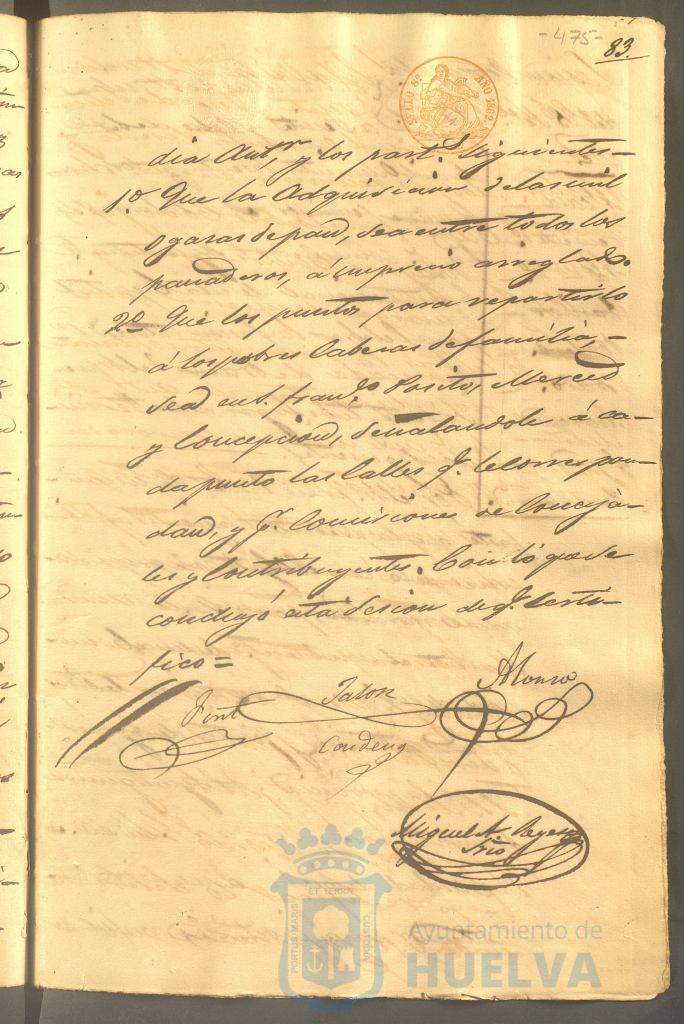 -475-
83.
SELLO 8º AÑO 1892
dia Antr, y los part.s siguientes=
1.º Que la Adquisicion de las mil
ogazas de pan, sea entre todos los
panaderos, á un precio arreglado.
2º Que los puntos para repartirlo
á los pobres Cabezas de familia, -
sea en S. Fran.co Posito, Merced
y Concepcion, señalandole á ca-
da punto las Calles q.e le correspon-
dan, y p.r Comisiones de Conceja-
les y Contribuyentes. Con lo que se
concluyó esta Sesion de q.e Certi-
fico=
Alonso
Jalon
Miguel A. Reyes
Srio
ET TERRÆ
PORTUS MARIS
CUSTODIA
Ayuntamiento de
HUELVA